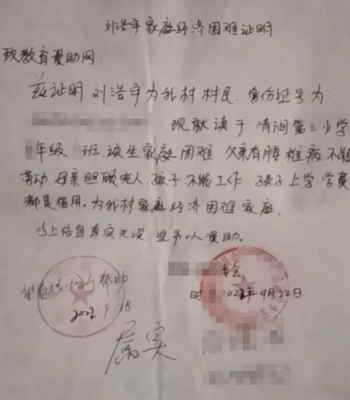 刘浩宇家庭经济困难证明
致教育资助网：
兹证明 刘浩宇为我村村民 身份证号为：
现就读于清涧第三小学
年级 班，该生家庭困难 父亲有腰椎病不能
劳动，母亲照顾老人，孩子不能工作，孩子上学 学费
都是借用，为我村家庭经济困难家庭，
以上信息真实无误 望予以资助。
委会
2022年9月22日
2022 9 28
属实